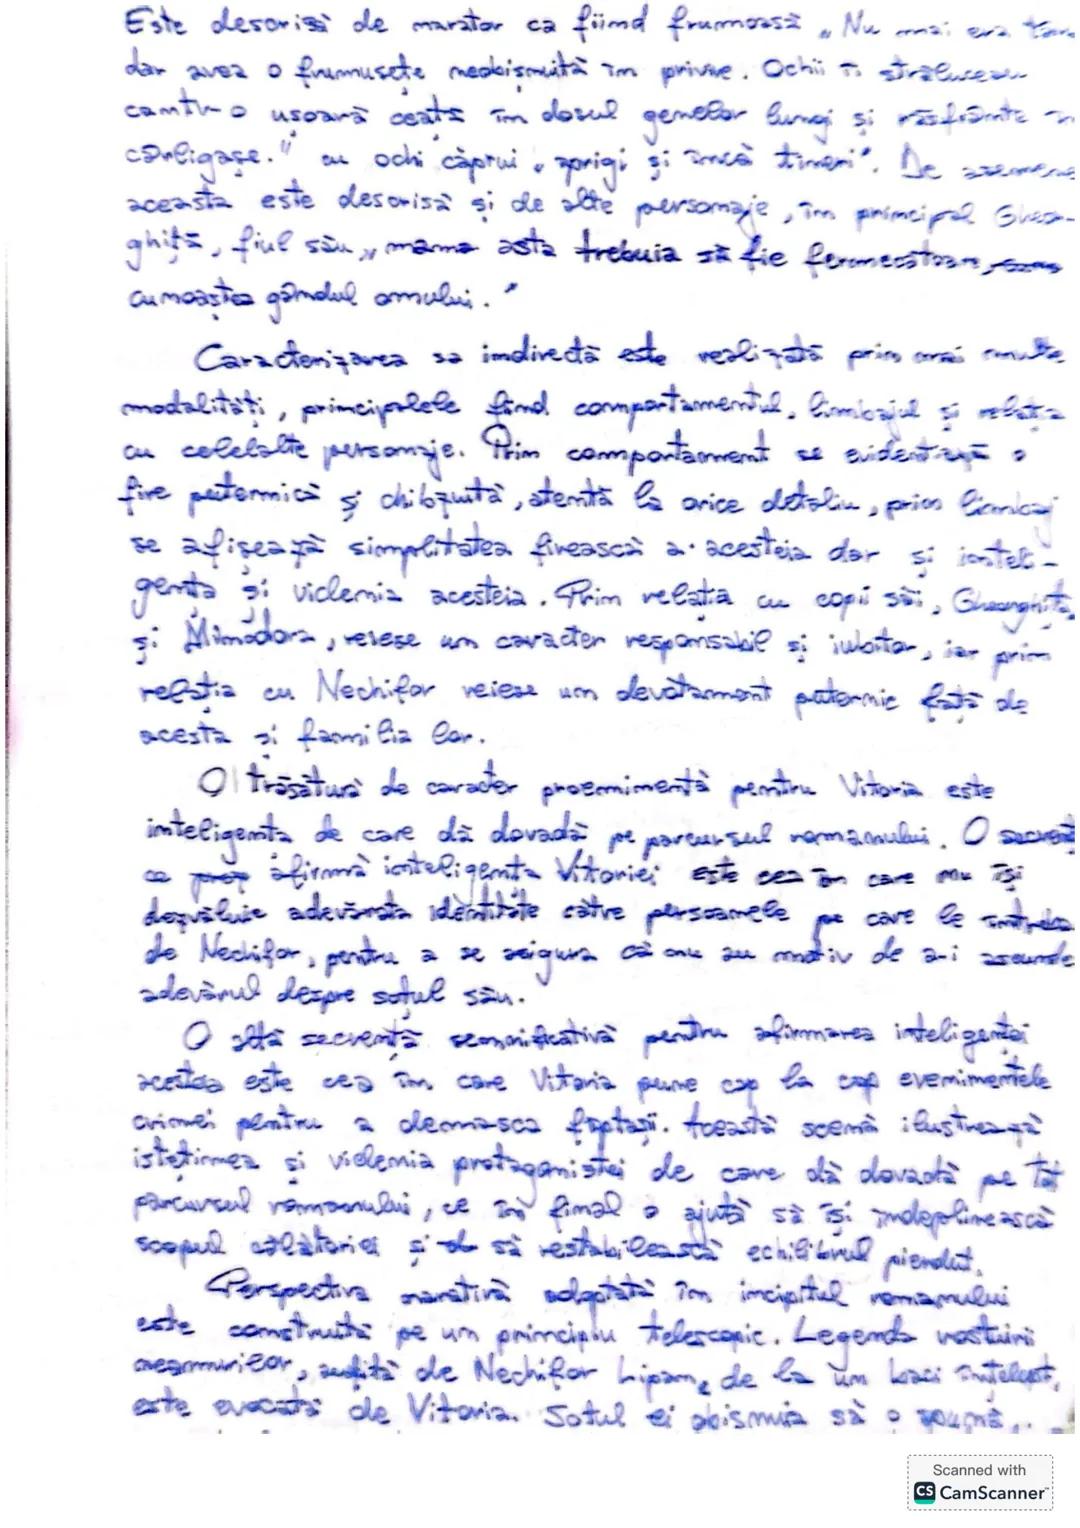 Este descrisă de narator ca fiind frumoasă „Nu mai era
dar avea o frumusețe neobișnuită în privire. Ochii îi străluceau
cantr-o ușoară ceață în dosul genelor lungi și răsfrânte în
cârligașe." cu ochi căprui „aprigi și încă tineri". De asemene
aceasta este descrisă și de alte personaje, în principal Gheor-
ghiță, fiul său, „mama asta trebuia să fie fermecătoare,
cunoaștea gândul omului."
Caracterizarea sa indirectă este realizată prin mai multe
modalități, principalele fiind comportamentul, limbajul și relația
cu celelalte personaje. Prin comportament se evidențiază o
fire puternică și chibzuită, atentă la orice detaliu, prin limbaj
se afișează simplitatea firească a acesteia dar și inteli-
gența și viclenia acesteia. Prin relația cu copii săi, Gheorghiță,
și Minodora, reiese un caracter responsabil și iubitor, iar prin
relația cu Nechifor reiese un devotament puternic față de
acesta și familia lor.
O trăsătură de caracter proeminentă pentru Vitoria este
inteligența de care dă dovadă pe parcursul romanului. O secvență
ce afirmă inteligența Vitoriei este cea în care nu își
dezvăluie adevărata identitate către persoanele pe care le întreba
de Nechifor, pentru a se asigura că nu au motiv de a-i ascunde
adevărul despre soțul său.
O altă secvență semnificativă pentru afirmarea inteligenței
acesteia este cea în care Vitoria pune cap la cap evenimentele
crimei pentru a demasca făptașii. Această scenă ilustrează
istețimea și viclenia protagonistei de care dă dovadă pe tot
parcursul romanului, ce în final o ajută să își îndeplinească
scopul călătoriei și să restabilească echilibrul pierdut.
Perspectiva narativă adoptată în incipitul romanului
este construită pe un principiu telescopic. Legenda rostuirii
neamurilor, auzită de Nechifor Lipan, de la un baci înțelept,
este evocată de Vitoria. Soțul ei obișnuia să o spună
Scanned with
CS CamScanner